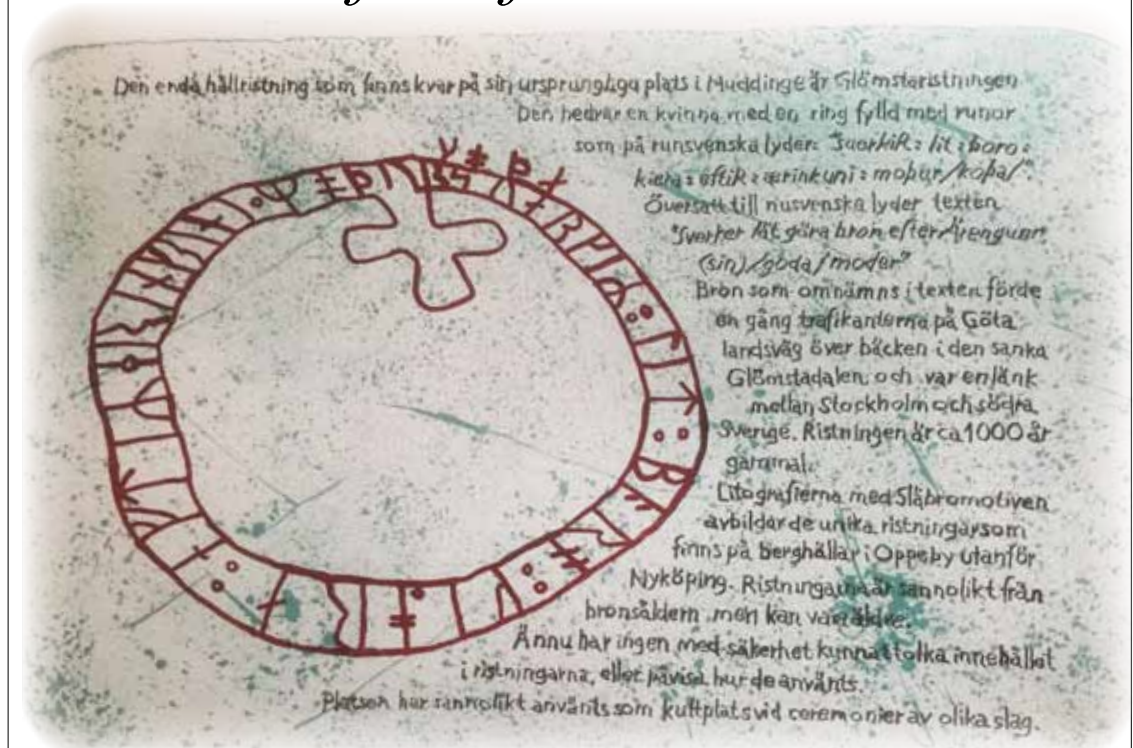 Den enda hällristning som finns kvar på sin ursprungliga plats i Huddinge är Glömstaristningen
Den hedrar en kvinna med en ring fylld med runor
som på runsvenska lyder: "suerkiR : lit : boro :
kiera : eftiR : erinkuni : moþur/koþa/".
Översatt till nusvenska lyder texten
"Sverker lät göra bron efter Ärengunn
(sin)/goda/moder"
Bron som omnämns i texten förde
en gång trafikanterna på Göta
landsväg över bäcken i den sanka
Glömstadalen och var en länk
mellan Stockholm och södra
Sverige. Ristningen är ca 1000 år
gammal.
Litografierna med Släbromotiven
avbildar de unika ristningar som
finns på berghällar i Oppeby utanför
Nyköping. Ristningarna är sannolikt från
bronsåldern men kan vara äldre.
Ännu har ingen med säkerhet kunnat tolka innehållet
i ristningarna, eller påvisa hur de använts.
Platsen har sannolikt använts som kultplats vid ceremonier av olika slag.